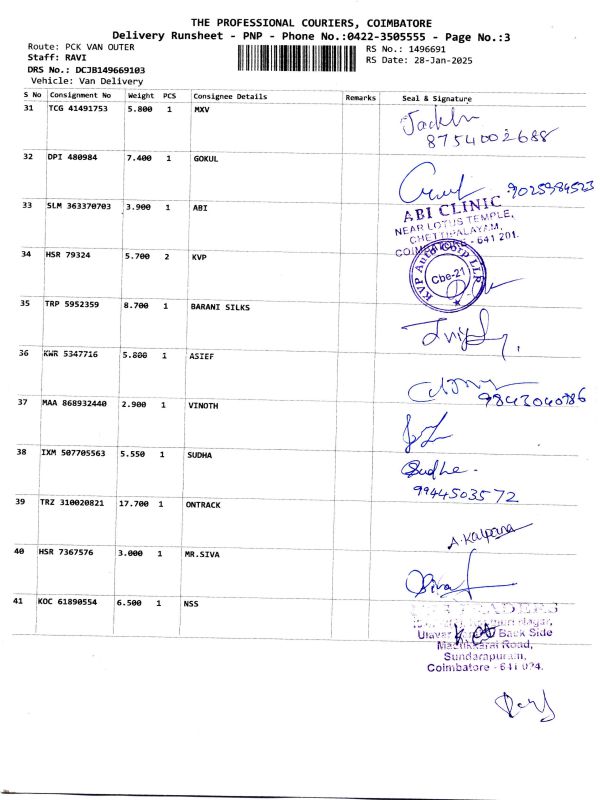 THE PROFESSIONAL COURIERS, COIMBATORE
Delivery Runsheet - PNP - Phone No.:0422-3505555 - Page No.:3
Route: PCK VAN OUTER RS No.: 1496691
Staff: RAVI RS Date: 28-Jan-2025
DRS No.: DCJB149669103
Vehicle: Van Delivery
S No Consignment No Weight PCS Consignee Details Remarks Seal & Signature
31 TCG 41491753 5.800 1 MXV
8754002688
32 DPI 480984 7.400 1 GOKUL
9025984523
33 SLM 363370703 3.900 1 ABI
ABI CLINIC
NEAR LOTUS TEMPLE,
CHETTIPALAYAM,
COIMBATORE - 641 201.
34 HSR 79324 5.700 2 KVP
KVP Auto Corp LLP
Cbe-21
35 TRP 5952359 8.700 1 BARANI SILKS
36 KWR 5347716 5.800 1 ASIEF
9843040786
37 MAA 868932440 2.900 1 VINOTH
38 IXM 507705563 5.550 1 SUDHA
Sudha
9944503572
39 TRZ 310020821 17.700 1 ONTRACK
A. Kalpana
40 HSR 7367576 3.000 1 MR.SIVA
Siva
41 KOC 61890554 6.500 1 NSS
TRADERS
Nagar,
Back Side
Machikkarai Road,
Sundarapuram,
Coimbatore - 641 024.